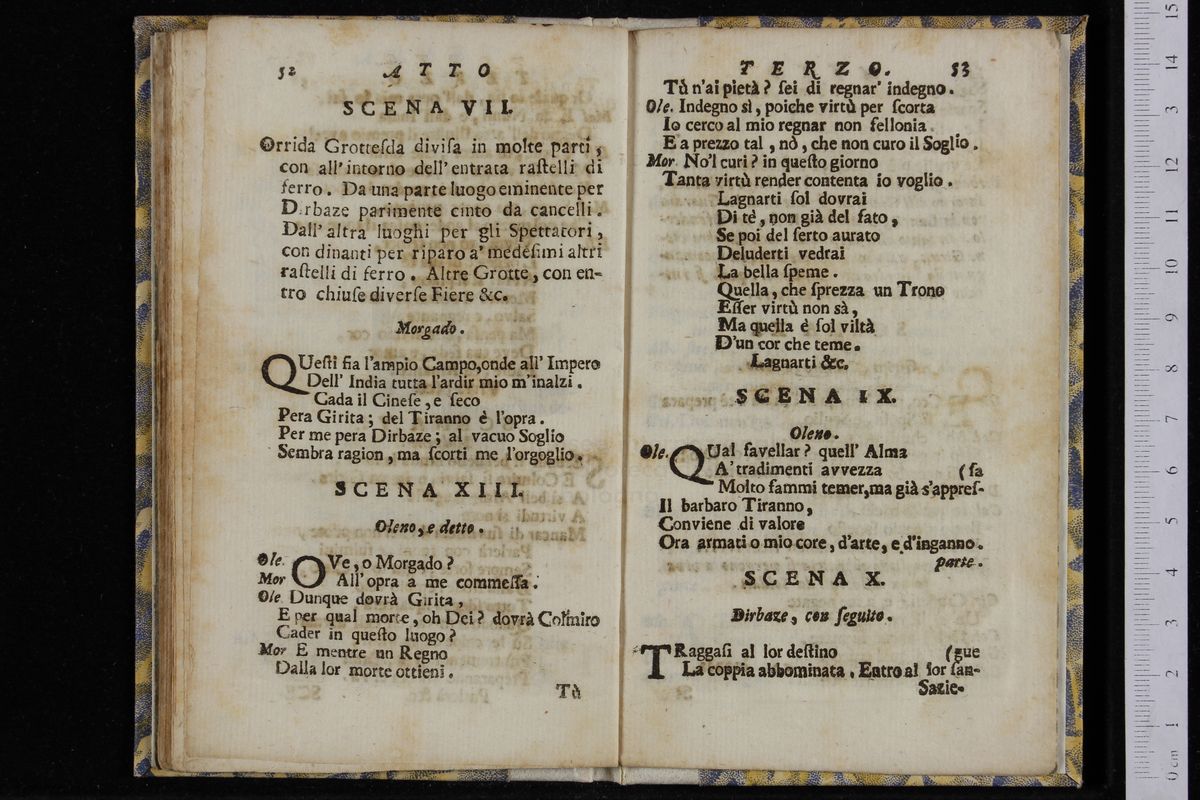 52 ATTO
SCENA VII.
Orrida Grottesda divisa in molte parti,
con all' intorno dell' entrata rastelli di
ferro. Da una parte luogo eminente per
D.rbaze parimente cinto da cancelli.
Dall' altra luoghi per gli Spettatori,
con dinanti per riparo a' medesimi altri
rastelli di ferro. Altre Grotte, con en-
tro chiuse diverse Fiere &c.
Morgado.
QUesti fia l'ampio Campo, onde all' Impero
Dell' India tutta l'ardir mio m'inalzi.
Cada il Cinese, e seco
Pera Girita; del Tiranno è l'opra.
Per me pera Dirbaze; al vacuo Soglio
Sembra ragion, ma scorti me l'orgoglio.
SCENA XIII.
Oleno, e detto.
Ole. OVe, o Morgado?
Mor All' opra a me commessa.
Ole Dunque dovrà Girita,
E per qual morte, oh Dei? dovrà Cosmiro
Cader in questo luogo?
Mor E mentre un Regno
Dalla lor morte ottieni.
Tù
TERZO. 53
Tù n'ai pietà? sei di regnar' indegno.
Ole. Indegno sì, poiche virtù per scorta
Io cerco al mio regnar non fellonia
E a prezzo tal, nò, che non curo il Soglio.
Mor No'l curi? in questo giorno
Tanta virtù render contenta io voglio.
Lagnarti sol dovrai
Di tè, non già del fato,
Se poi del serto aurato
Deluderti vedrai
La bella speme.
Quella, che sprezza un Trono
Esser virtù non sà,
Ma quella è sol viltà
D'un cor che teme.
Lagnarti &c.
SCENA IX.
Oleno.
Ole. QUal favellar? quell' Alma
A' tradimenti avvezza (sa
Molto fammi temer, ma già s'appres-
Il barbaro Tiranno,
Conviene di valore
Ora armati o mio core, d'arte, e d'inganno.
parte.
SCENA X.
Dirbaze, con seguito.
TRaggasi al lor destino (gue
La coppia abbominata. Entro al lor san-
Sazie-
15
14
13
12
11
10
9
8
7
6
5
4
3
2
1
0 cm